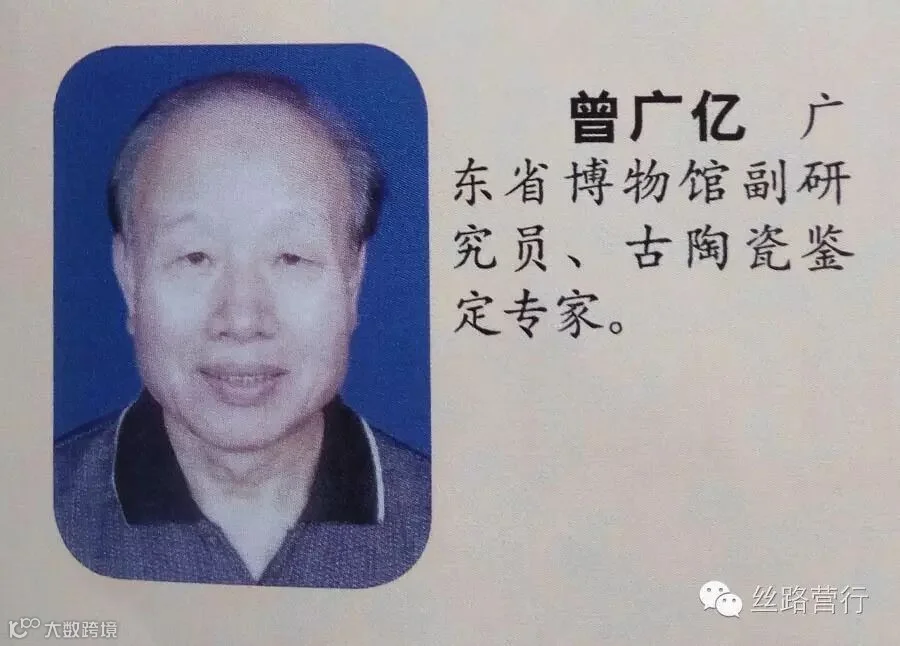 曾广亿 广
东省博物馆副研
究员、古陶瓷鉴
定专家。
丝路营行
大数跨境